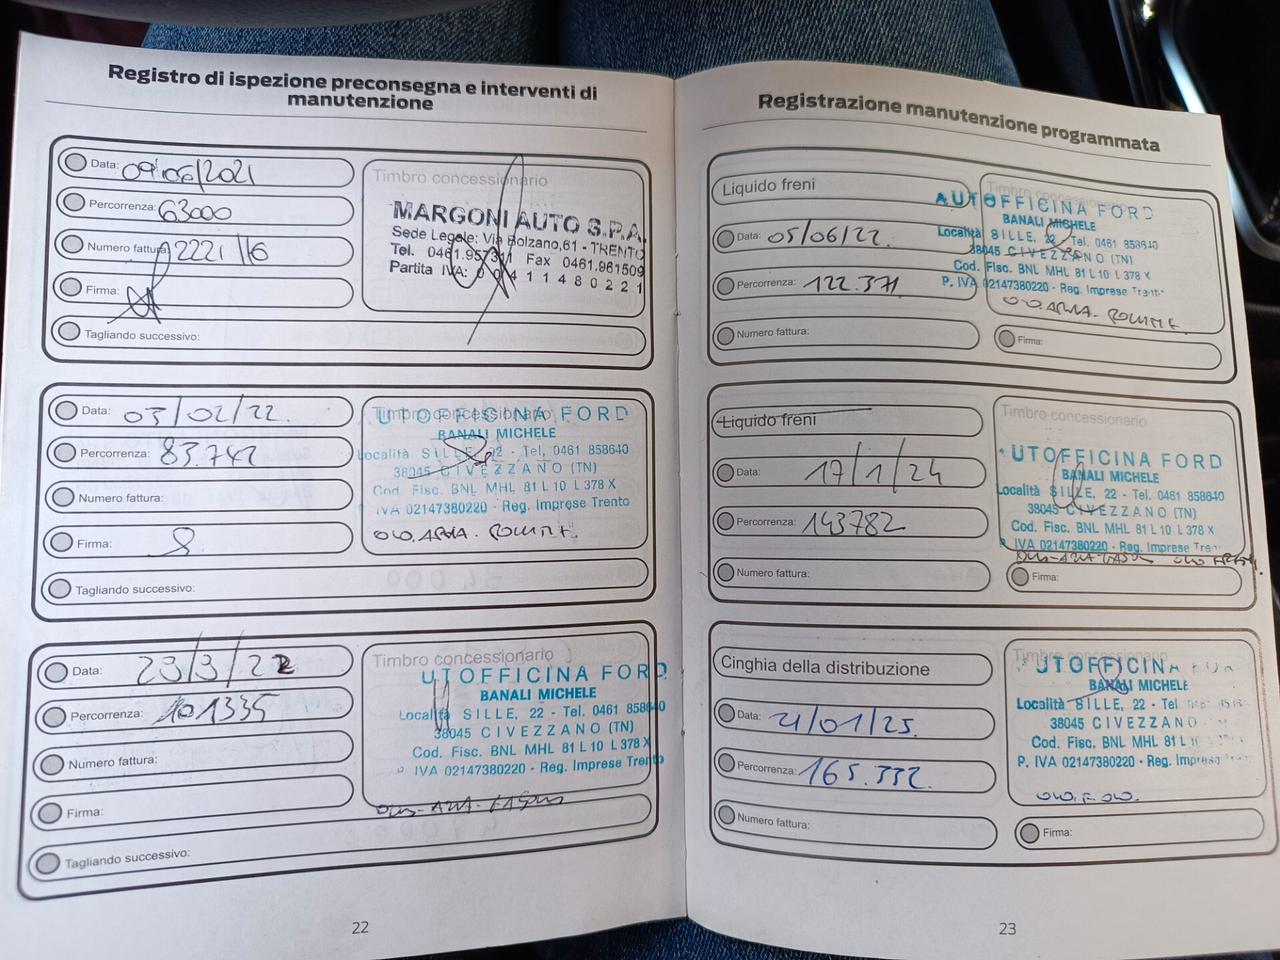 Registro di ispezione preconsegna e interventi di
manutenzione
Data: 09/06/2021
Percorrenza: 63000
Numero fattura: 2221 116
Firma:
Tagliando successivo:
Timbro concessionario
MARGONI AUTO S.P.A.
Sede Legale: Via Bolzano,61 - TRENTO
Tel. 0461.957311 Fax 0461.961509
Partita IVA: 00411480221
Data: 03/02/22.
Percorrenza: 83.742
Numero fattura:
Firma:
Tagliando successivo:
Timbro concessionario
UTOFFICINA FORD
BANALI MICHELE
Località SILLE, 22 - Tel. 0461 858640
38045 CIVEZZANO (TN)
Cod. Fisc. BNL MHL 81 L 10 L 378 X
IVA 02147380220 - Reg. Imprese Trento
Data: 23/3/22
Percorrenza: 101335
Numero fattura:
Firma:
Tagliando successivo:
Timbro concessionario
UTOFFICINA FORD
BANALI MICHELE
Località SILLE, 22 - Tel. 0461 858640
38045 CIVEZZANO (TN)
Cod. Fisc. BNL MHL 81 L 10 L 378 X
P IVA 02147380220 - Reg. Imprese Trento
22
Registrazione manutenzione programmata
Liquido freni
Data: 05/06/22.
Percorrenza: 122.371
Numero fattura:
Timbro concessionario
AUTOFFICINA FORD
BANALI MICHELE
Località SILLE, 22 Tel. 0461 858640
38045 CIVEZZANO (TN)
Cod. Fisc. BNL MHL 81 L 10 L 378 X
P. IVA 02147380220 - Reg. Imprese Trento
Firma:
Liquido freni
Data: 17/1/24
Percorrenza: 143782
Numero fattura:
Timbro concessionario
UTOFFICINA FORD
BANALI MICHELE
Località SILLE, 22 - Tel. 0461 858640
38045 CIVEZZANO (TN)
Cod. Fisc. BNL MHL 81 L 10 L 378 X
P. IVA 02147380220 - Reg. Imprese Tren
Firma:
Cinghia della distribuzione
Data: 21/01/25.
Percorrenza: 165.332.
Numero fattura:
Timbro concessionario
UTOFFICINA
BANALI MICHELE
Località SILLE, 22 - Tel
38045 CIVEZZANO
Cod. Fisc. BNL MHL 81 L 10
P. IVA 02147380220 - Reg. Imprese
Firma:
23